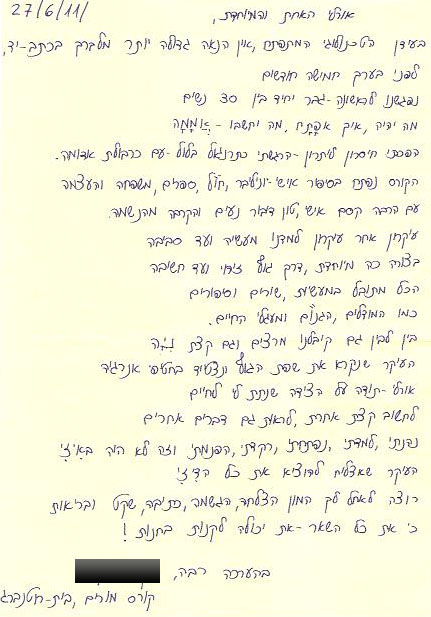 27/6/11
אורלי האחת והמיוחדת,
בעידן הטכנולוגי המתפתח, אין הנאה גדולה יותר מלברך בכתב-יד,
לפני בערך חמישה חודשים
נפגשנו לראשונה - גבר יחיד בין 30 נשים
מה יהיה, איך אפתח, מה יחשבו -
הפכתי חיסרון ליתרון - הרגשתי כתרנגול בלול - עם כרבולת אדומה.
הקורס נפתח בסיפור אישי ספרים, משפחה והעצמה
עם הרבה קסם אישי, טון דיבור נעים והקרבה מהנשמה.
עיקרון אחר עיקרון למדנו מעשיה ועד סביבה
בצורה כה מיוחדת, דרך גוף ועד חשיבה
הכל מתובל במעשיות, שירים וסיפורים
כמו המודלים, ומעגלי החיים.
בין לבין גם קיבלנו מרצים וגם קצת
העיקר שנקרא את שפת הגוף ונצטייד בחטיפי אנרגיה
אורלי - תודה על הצידה שנתת לי לחיים
לחשוב קצת אחרת, לראות גם דברים אחרים
נהנתי, למדתי, נפתחתי, רקדתי, הפנמתי וזה לא היה
העיקר שאצליח להוציא את כל
רוצה לאחל לך המון הצלחה, הגשמה, כתיבה, שקט ובריאות
כי את כל השאר - את יכולה לקנות בחנות!
בהערכה רבה,
קורס מורים, בית-רוטנברג